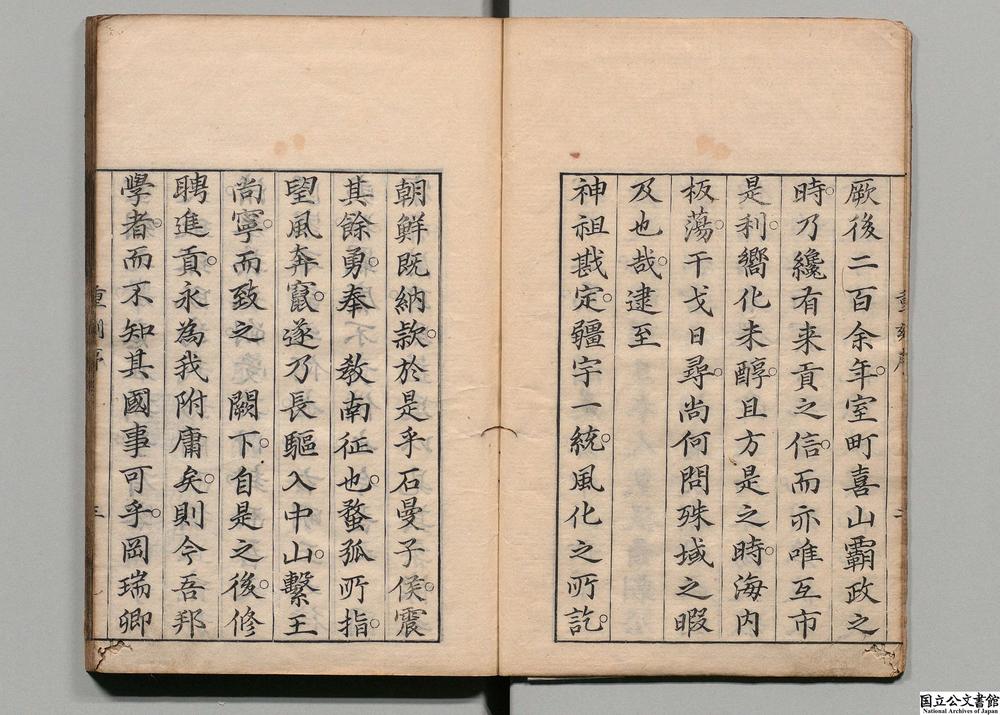 厥後二百余年。室町喜山霸政之
時。乃纔有来貢之信。而亦唯互市
是利。嚮化未醇。且方是之時。海内
板蕩。干戈日尋。尚何問殊域之暇
及也哉。逮至
神祖戡定。疆宇一統。風化之所訖。
朝鮮既納款。於是乎石曼子侯。震
其餘勇。奉 教南征也。蝥弧所指。
望風奔竄。遂乃長驅入中山。繫王
尚寧。而致之 闕下。自是之後。修
聘進貢。永為我附庸矣。則今吾邦
學者。而不知其國事可乎。岡瑞卿
三
国立公文書館
National Archives of Japan